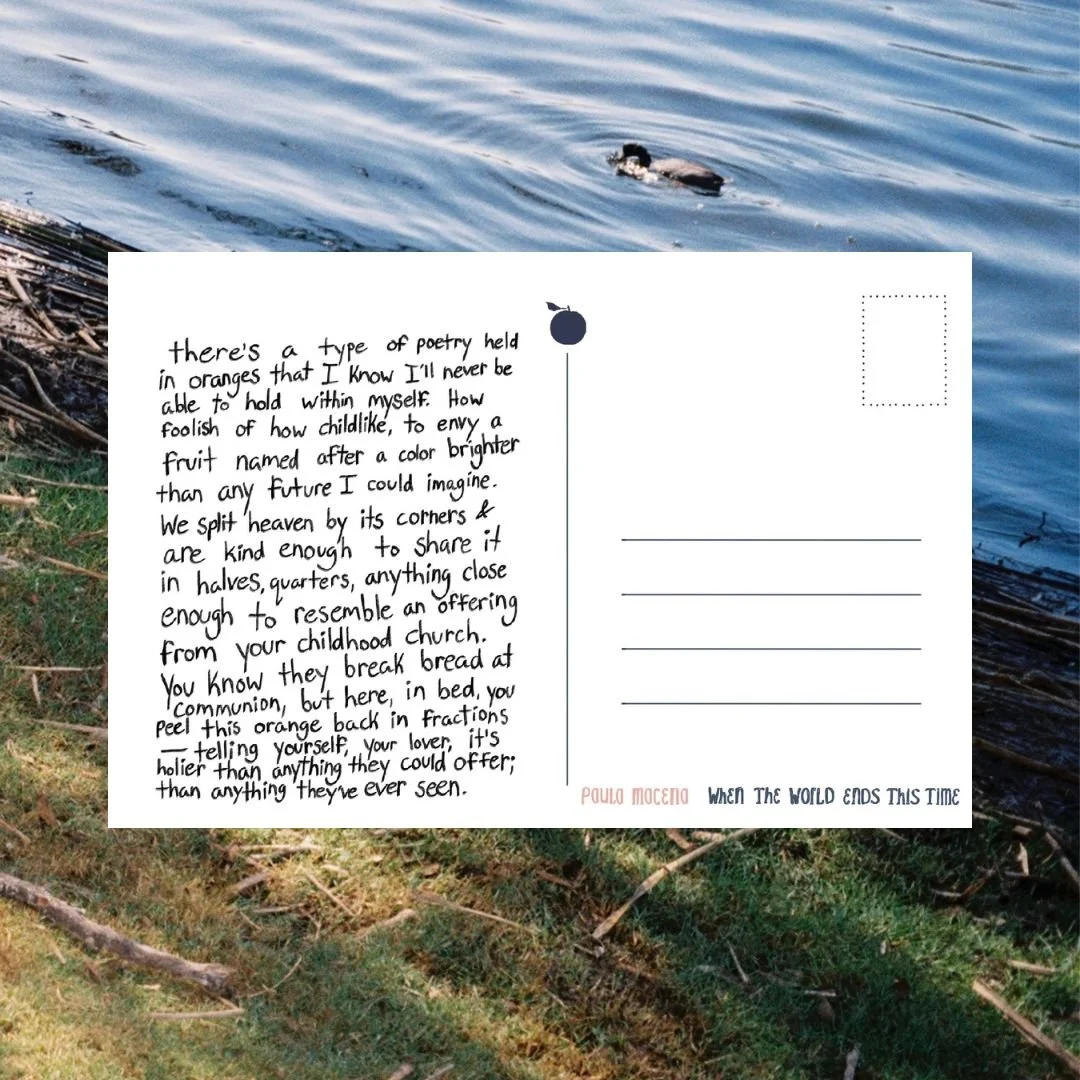 there's a type of poetry held
in oranges that I know I'll never be
able to hold within myself. How
foolish of how childlike, to envy a
fruit named after a color brighter
than any future I could imagine.
We split heaven by its corners &
are kind enough to share it
in halves, quarters, anything close
enough to resemble an offering
from your childhood church.
You know they break bread at
communion, but here, in bed, you
peel this orange back in fractions
— telling yourself, your lover, it's
holier than anything they could offer;
than anything they've ever seen.
Paula Macena WHEN THE WORLD ENDS THIS TIME